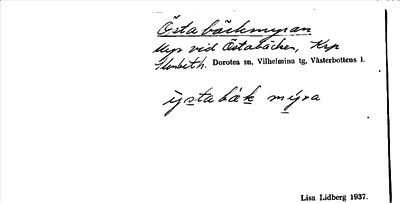 Östabäckmyran
Myr vid Östabäcken, Krp
Dorotea sn, Vilhelmina tg, Västerbottens l.
ỳstabäk mýra
Lisa Lidberg 1937.